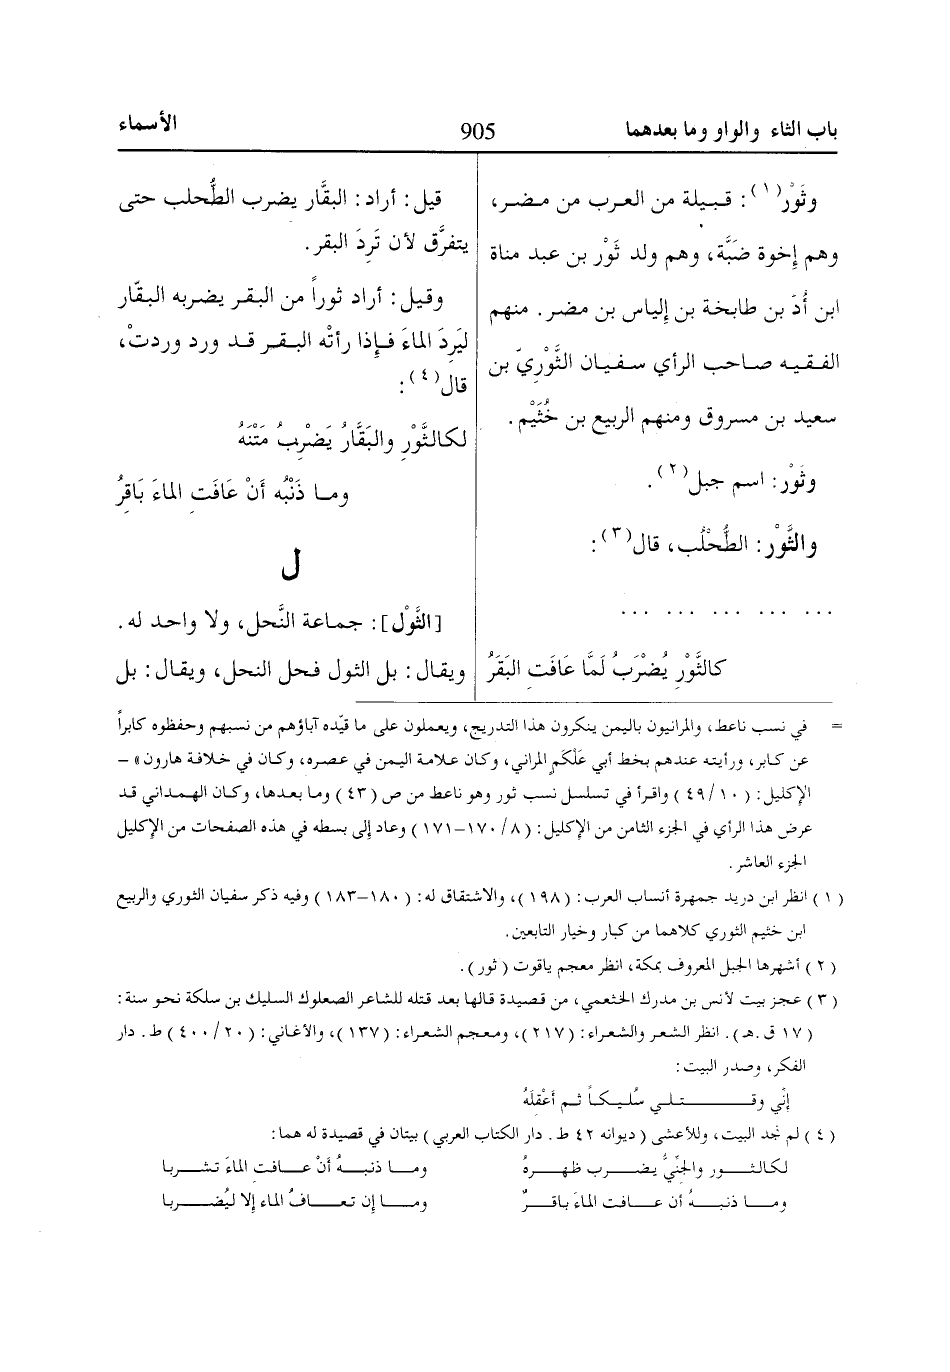 باب الثاء والواو وما بعدهما 905 الأسماء
وثَوْر(١): قبيلة من العرب من مضر،
وهم إخوة ضَبَّة، وهم ولد ثَوْر بن عبد مناة
ابن أُدّ بن طابخة بن إلياس بن مضر. منهم
الفقيه صاحب الرأي سفيان الثَّوْريّ بن
سعيد بن مسروق ومنهم الربيع بن خُثَيْم.
وثَوْر: اسم جبل(٢).
والثَّوْر: الطُّحْلُب، قال(٣):
... ... ... ... ...
كالثَّوْرِ يُضْرَبُ لَمَّا عَافَتِ البَقَرُ
قيل: أراد: البقَّار يضرب الطُّحلب حتى
يتفرَّق لأن تَرِدَ البقر.
وقيل: أراد ثوراً من البقر يضربه البقّار
ليَرِدَ الماءَ فإذا رأتْه البقر قد ورد وردتْ،
قال(٤):
لكالثَّوْرِ والبَقَّارُ يَضْرِبُ مَتْنَهُ
وما ذَنْبُه أنْ عَافَتِ الماءَ بَاقِرُ
ل
[الثَّوْل]: جماعة النَّحل، ولا واحد له.
ويقال: بل الثول فحل النحل، ويقال: بل
= في نسب ناعط، والمرانيون باليمن ينكرون هذا التدريج، ويعملون على ما قيّده آباؤهم من نسبهم وحفظوه كابراً
عن كابر، ورأيته عندهم بخط أبي عَلْكَمٍ المراني، وكان علامة اليمن في عصره، وكان في خلافة هارون» –
الإكليل: (١٠/٤٩) واقرأ في تسلسل نسب ثور وهو ناعط من ص (٤٣) وما بعدها، وكان الهمداني قد
عرض هذا الرأي في الجزء الثامن من الإكليل: (٨/١٧٠–١٧١) وعاد إلى بسطه في هذه الصفحات من الإكليل
الجزء العاشر.
(١) انظر ابن دريد جمهرة أنساب العرب: (١٩٨)، والاشتقاق له: (١٨٠–١٨٣) وفيه ذكر سفيان الثوري والربيع
ابن خثيم الثوري كلاهما من كبار وخيار التابعين.
(٢) أشهرها الجبل المعروف بمكة، انظر معجم ياقوت (ثور).
(٣) عجز بيت لأنس بن مدرك الخثعمي، من قصيدة قالها بعد قتله للشاعر الصعلوك السليك بن سلكة نحو سنة:
(١٧ ق.هـ). انظر الشعر والشعراء: (٢١٧)، ومعجم الشعراء: (١٣٧)، والأغاني: (٢٠/٤٠٠) ط. دار
الفكر، وصدر البيت:
إنّي وقتلي سُليكاً ثم أعْقلَهُ
(٤) لم نجد البيت، وللأعشى (ديوانه ٤٢ ط. دار الكتاب العربي) بيتان في قصيدة له هما:
لكالثور والجنّيُّ يضرب ظهرهُ وما ذنبهُ أنْ عافت الماءَ تشربا
وما ذنبهُ أن عافت الماءَ باقرٌ وما إن تعافُ الماء إلا ليُضربا